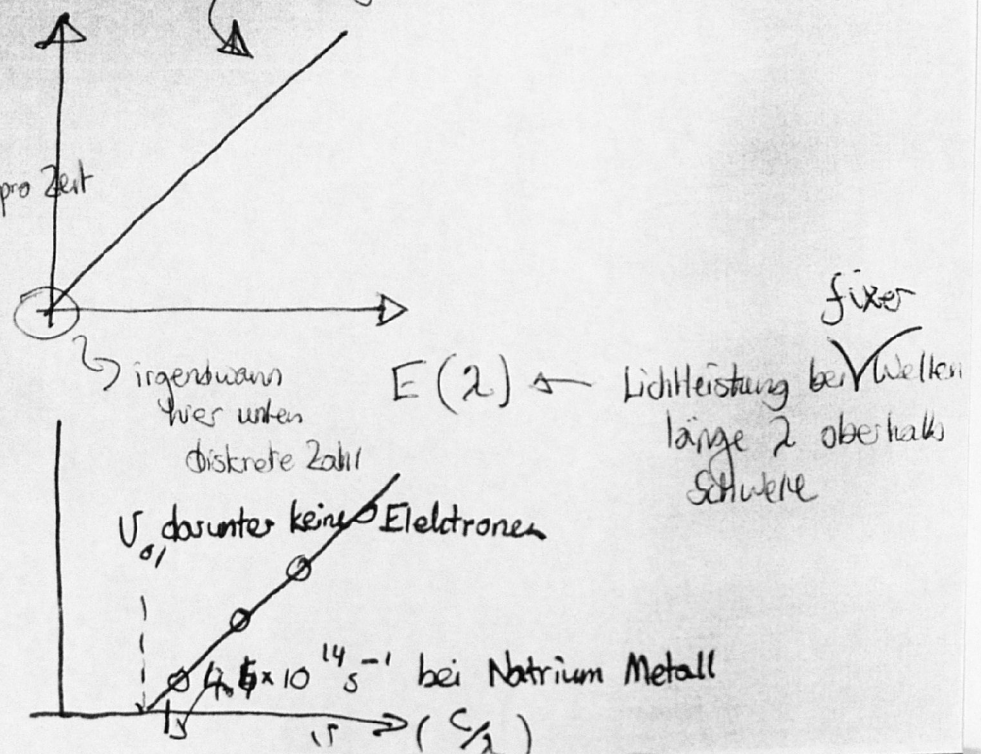 pro Zeit
fixer
irgendwann
hier unten
diskrete Zahl
E(λ) ← Lichtleistung bei Wellen
länge λ oberhalb
Schwelle
ν₀, darunter keine Elektronen
× 10¹⁴ s⁻¹ bei Natrium Metall
ν (c/λ)